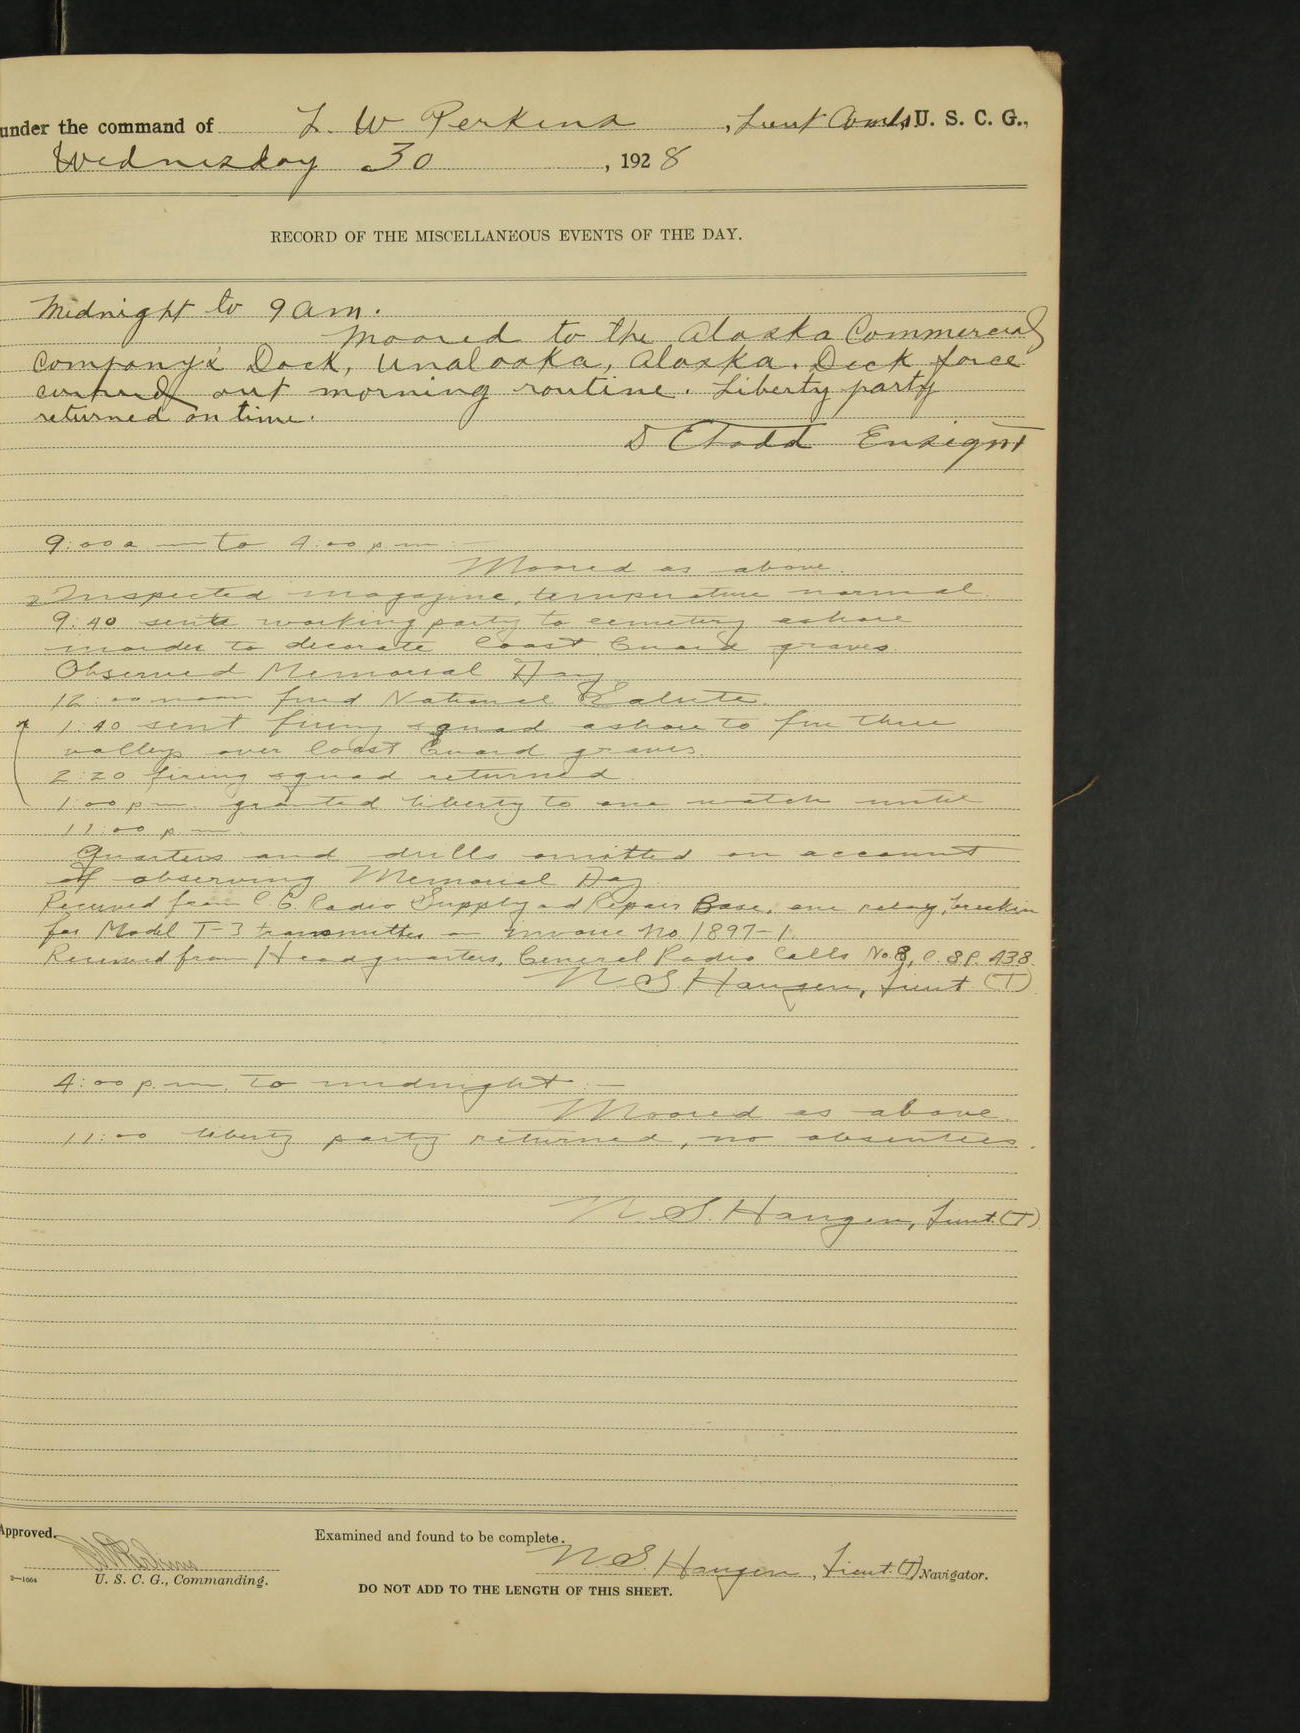 under the command of L. W. Perkins, Lieut. Comdr., U. S. C. G.,
Wednesday 30, 1928
RECORD OF THE MISCELLANEOUS EVENTS OF THE DAY.
Midnight to 9 am.
Moored to the Alaska Commercial
Company's Dock, Unalaska, Alaska. Deck force
carried out morning routine. Liberty party
returned on time.
Todd Ensign
9:00 a m to 4:00 p m:—
Moored as above.
Inspected magazine, temperature normal.
9:40 sent working party to cemetery ashore
in order to decorate Coast Guard graves.
Observed Memorial Day
12:00 noon fired National Salute.
1:40 sent firing squad ashore to fire three
volleys over Coast Guard graves.
2:20 firing squad returned.
1:00 p m. granted liberty to one watch until
11:00 p m.
Quarters and drills omitted on account
of observing Memorial Day.
Received from C. G. Radio Supply and Repair Base, one relay,
for Model T-3 transmitter on invoice No. 1897-1
Received from Headquarters, General Radio Calls No. 8, C. SP. 438.
N. S. Haugen, Lieut (T)
4:00 p. m. to midnight:—
Moored as above.
11:00 liberty party returned, no absentees.
N. S. Haugen, Lieut. (T)
Approved.
Examined and found to be complete.
N. S. Haugen, Lieut. (T) Navigator.
U. S. C. G., Commanding.
2—1664
DO NOT ADD TO THE LENGTH OF THIS SHEET.